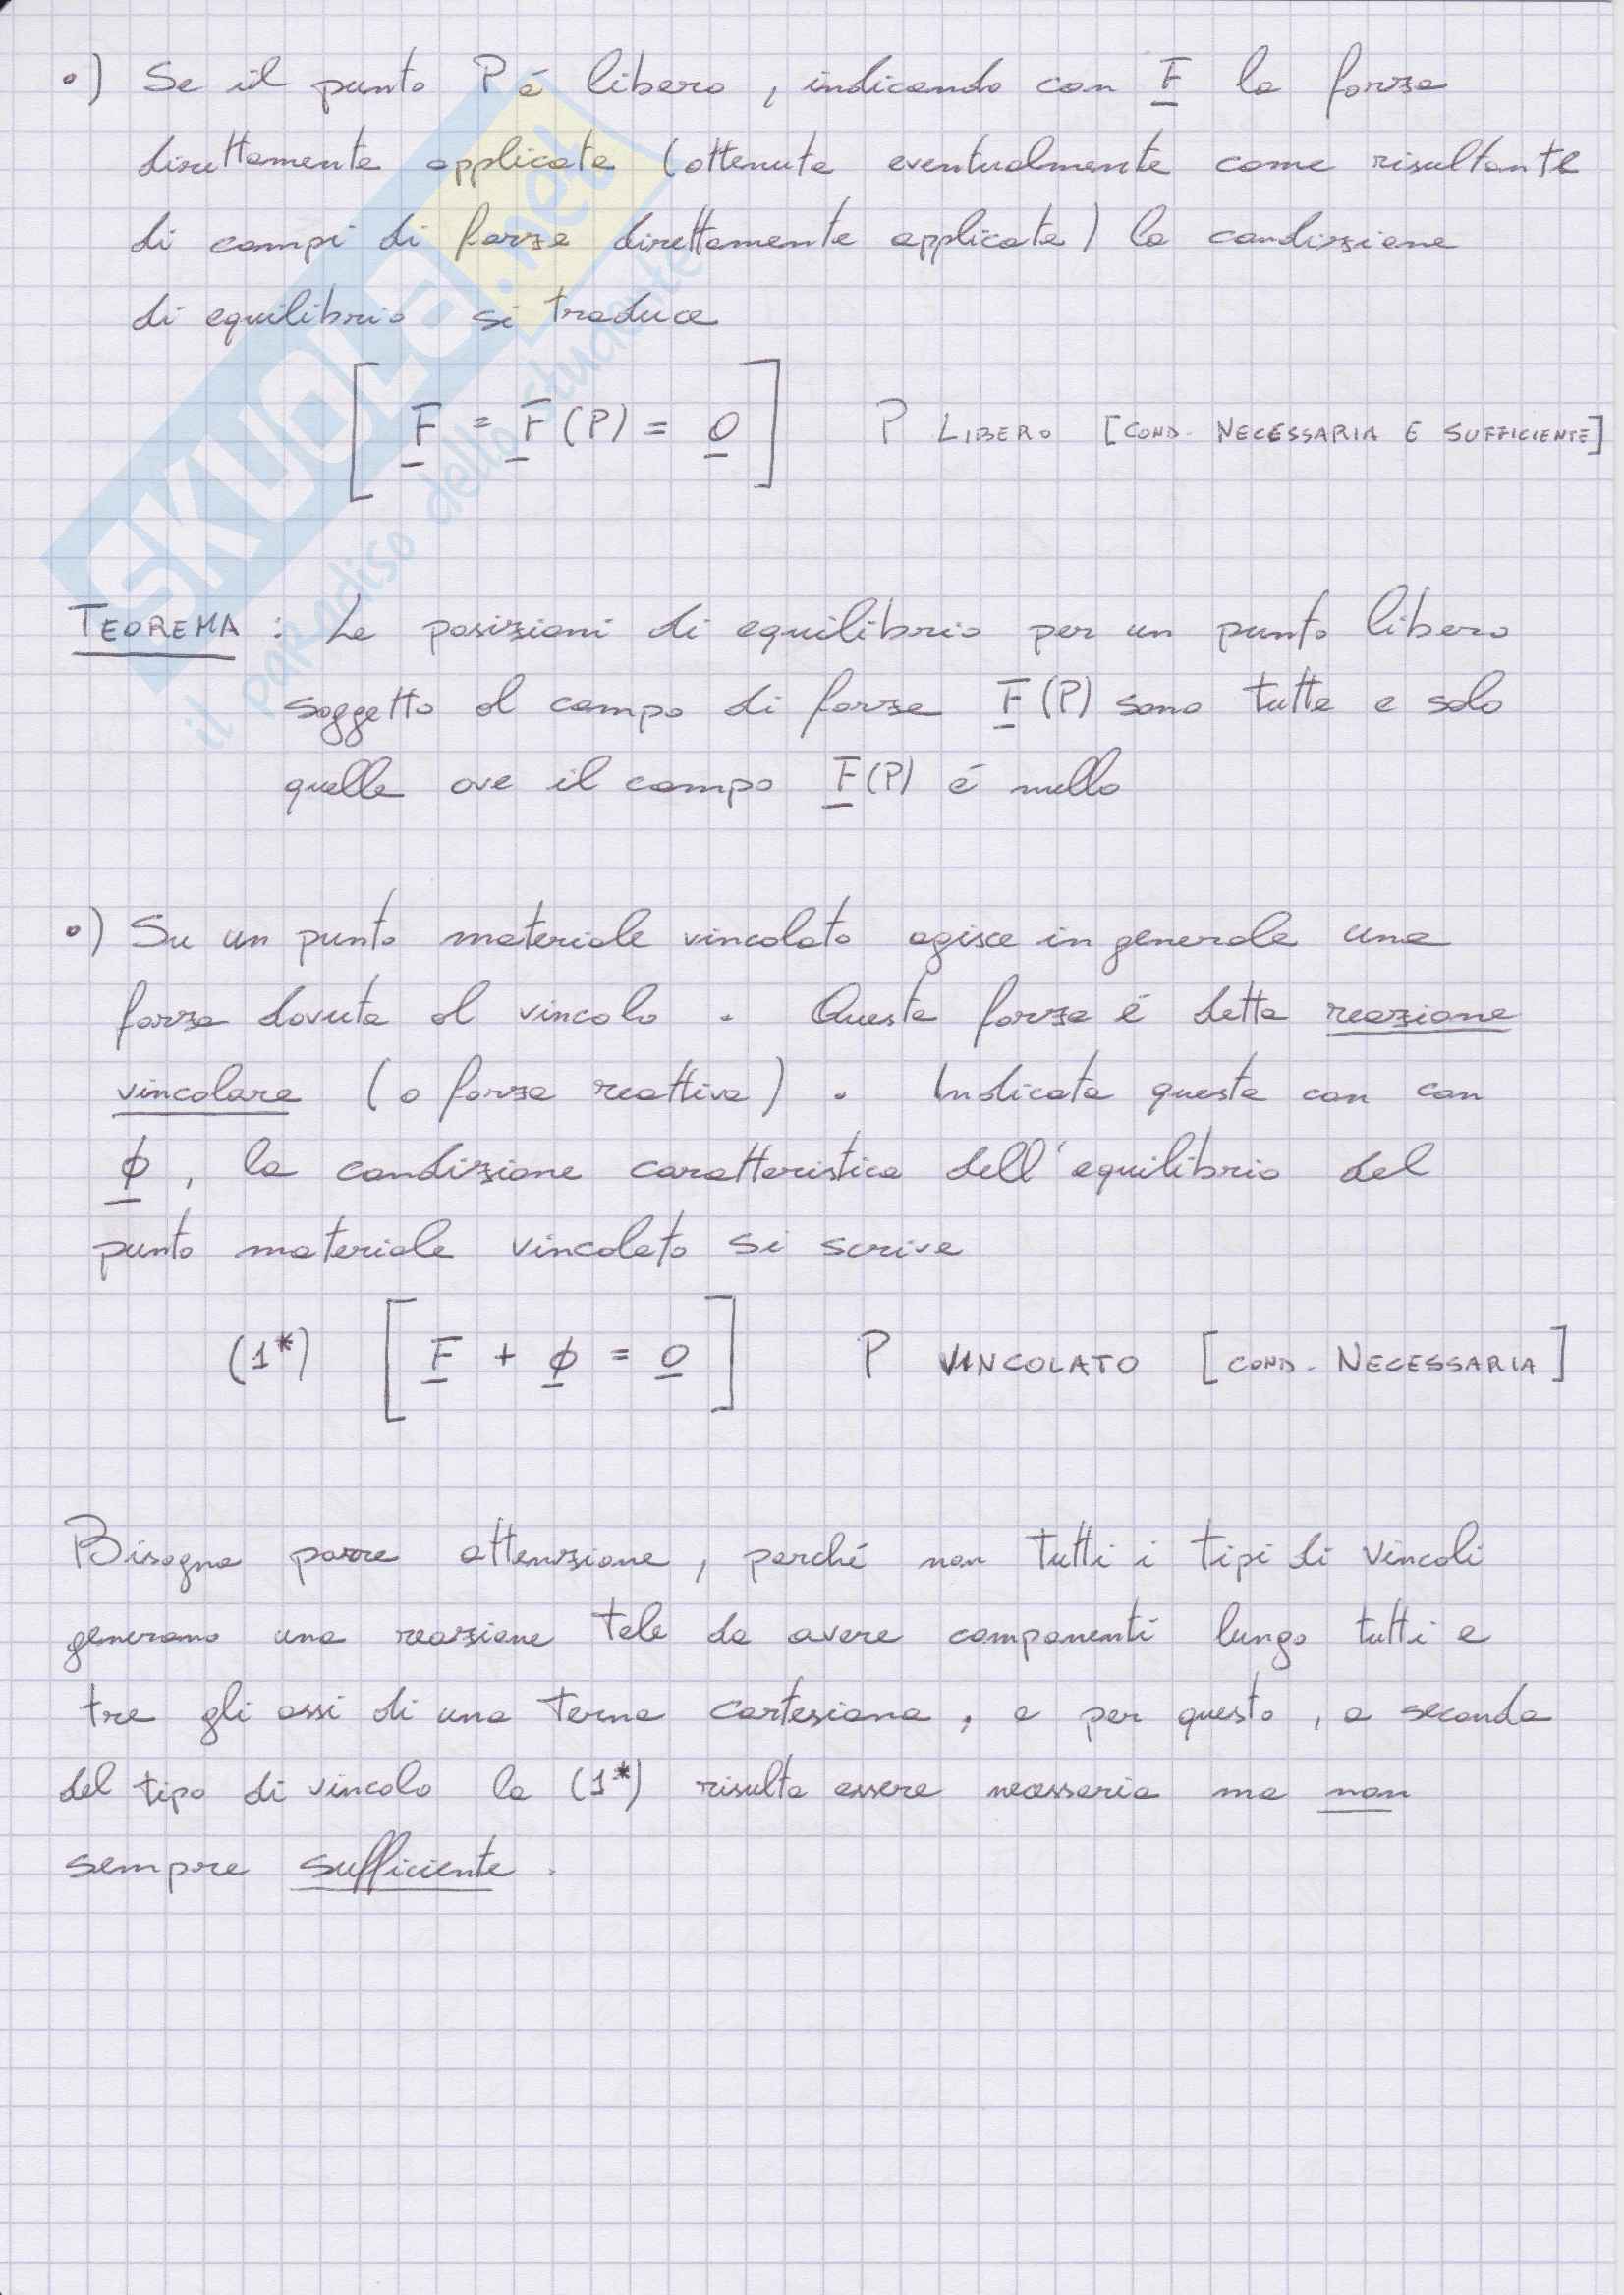 •) Se il punto P é libero, indicando con F la forza
direttamente applicata (ottenuta eventualmente come risultante
di campi di forza direttamente applicata) la condizione
di equilibrio si traduce
[ F = F(P) = 0 ] P LIBERO [COND. NECESSARIA E SUFFICIENTE]
TEOREMA : Le posizioni di equilibrio per un punto libero
soggetto al campo di forza F(P) sono tutte e solo
quelle ove il campo F(P) é nullo
•) Su un punto materiale vincolato agisce in generale una
forza dovuta al vincolo. Questa forza é detta reazione
vincolare (o forza reattiva). Indicata questa con con
ϕ, la condizione caratteristica dell'equilibrio del
punto materiale vincolato si scrive
(1*) [ F + ϕ = 0 ] P VINCOLATO [COND. NECESSARIA]
Bisogna porre attenzione, perché non tutti i tipi di vincoli
generano una reazione tale da avere componenti lungo tutti e
tre gli assi di una terna cartesiana, e per questo, a seconda
del tipo di vincolo la (1*) risulta essere necessaria ma non
sempre sufficiente.
SKUOLA.net
il paradiso dello studente